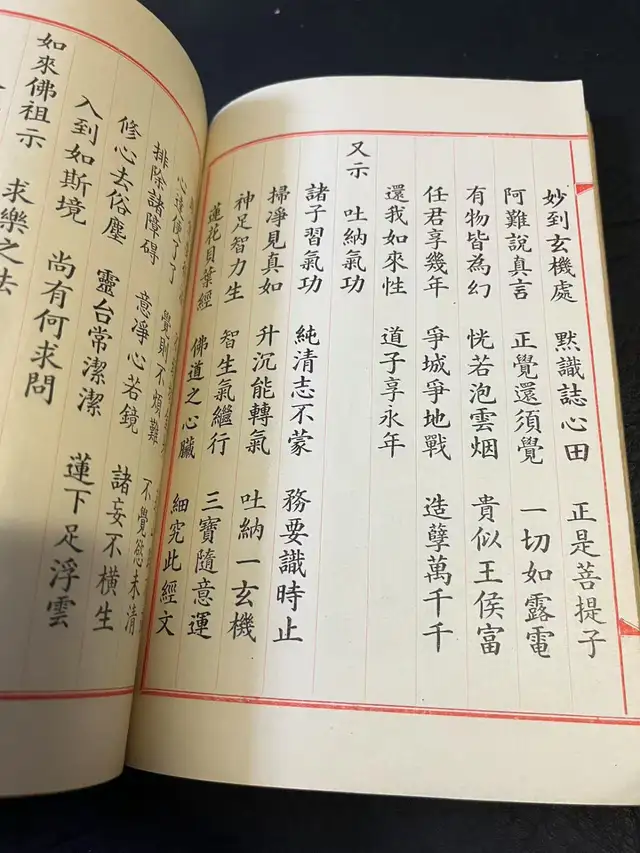 妙到玄機處 默識誌心田 正是菩提子
阿難說真言 正覺還須覺 一切如露電
有物皆為幻 恍若泡雲烟 貴似王侯富
任君享幾年 爭城爭地戰 造孽萬千千
還我如來性 道子享永年
又示 吐納氣功
諸子習氣功 純清志不蒙 務要識時止
掃凈見真如 升沉能轉氣 吐納一玄機
神足智力生 智生氣繼行 三寶隨意運
蓮花貝葉經 佛道之心臟 細究此經文
覺則不煩難 不覺慾未清
排除諸障碍 意凈心若鏡 諸妄不橫生
修心去俗塵 靈台常潔潔 蓮下足浮雲
入到如斯境 尚有何求問
如來佛祖示 求樂之法